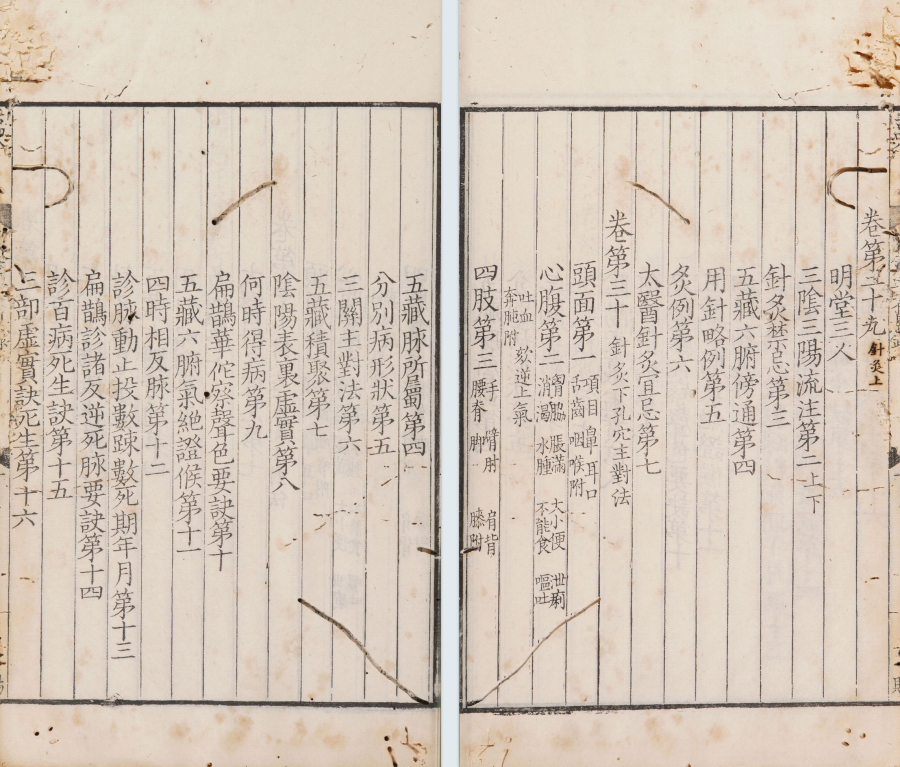 卷第二十九 針灸上
明堂三人
三陰三陽流注第二上下
針灸禁忌第三
五藏六腑傍通第四
用針略例第五
灸例第六
太醫針灸宜忌第七
卷第三十 針灸下孔穴主對法
頭面第一 項目鼻耳口舌齒咽喉附
心腹第二 胷脇脹滿大小便泄痢消渴水腫不能食嘔吐
吐血欬逆上氣奔㹠附
四肢第三 手臂肘肩背腰脊脚膝附
五藏脉所屬第四
分別病形狀第五
三關主對法第六
五藏積聚第七
陰陽表裏虛實第八
何時得病第九
扁鵲華佗察聲色要訣第十
五藏六腑氣絶證候第十一
四時相反脉第十二
診脉動止投數踈數死期年月第十三
扁鵲診諸反逆死脉要訣第十四
診百病死生訣第十五
三部虛實訣死生第十六